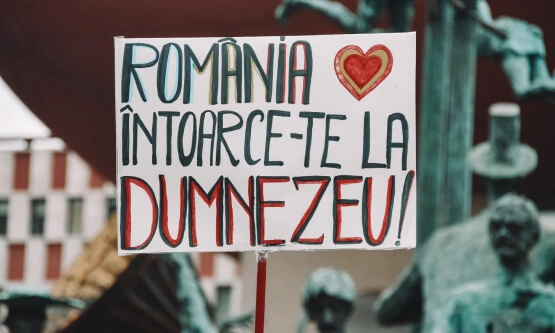 ROMÂNIA
ÎNTOARCE-TE LA
DUMNEZEU!